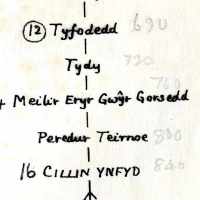 (12) Tyfodedd 690
Tydy 730
760
+ Meilir Eryr Gwŷr Gorsedd
Peredur Teirnoe 800
16 CILLIN YNFYD 840